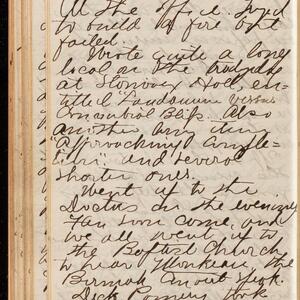 At the office. Tried
to build a fire but
failed.
Wrote quite a long
local on the
at Steinway Hall, en-
titled "Laudanum versus
Connubial Bliss." Also
another any thing
"Approaching Comple-
tion" and several
shorter ones.
Went up to the
Doctors in the evening
Fan soon come, and
we all went up to
the Baptist Church
to hear the
Burmah Convert speak.
Dick Pomeroy took